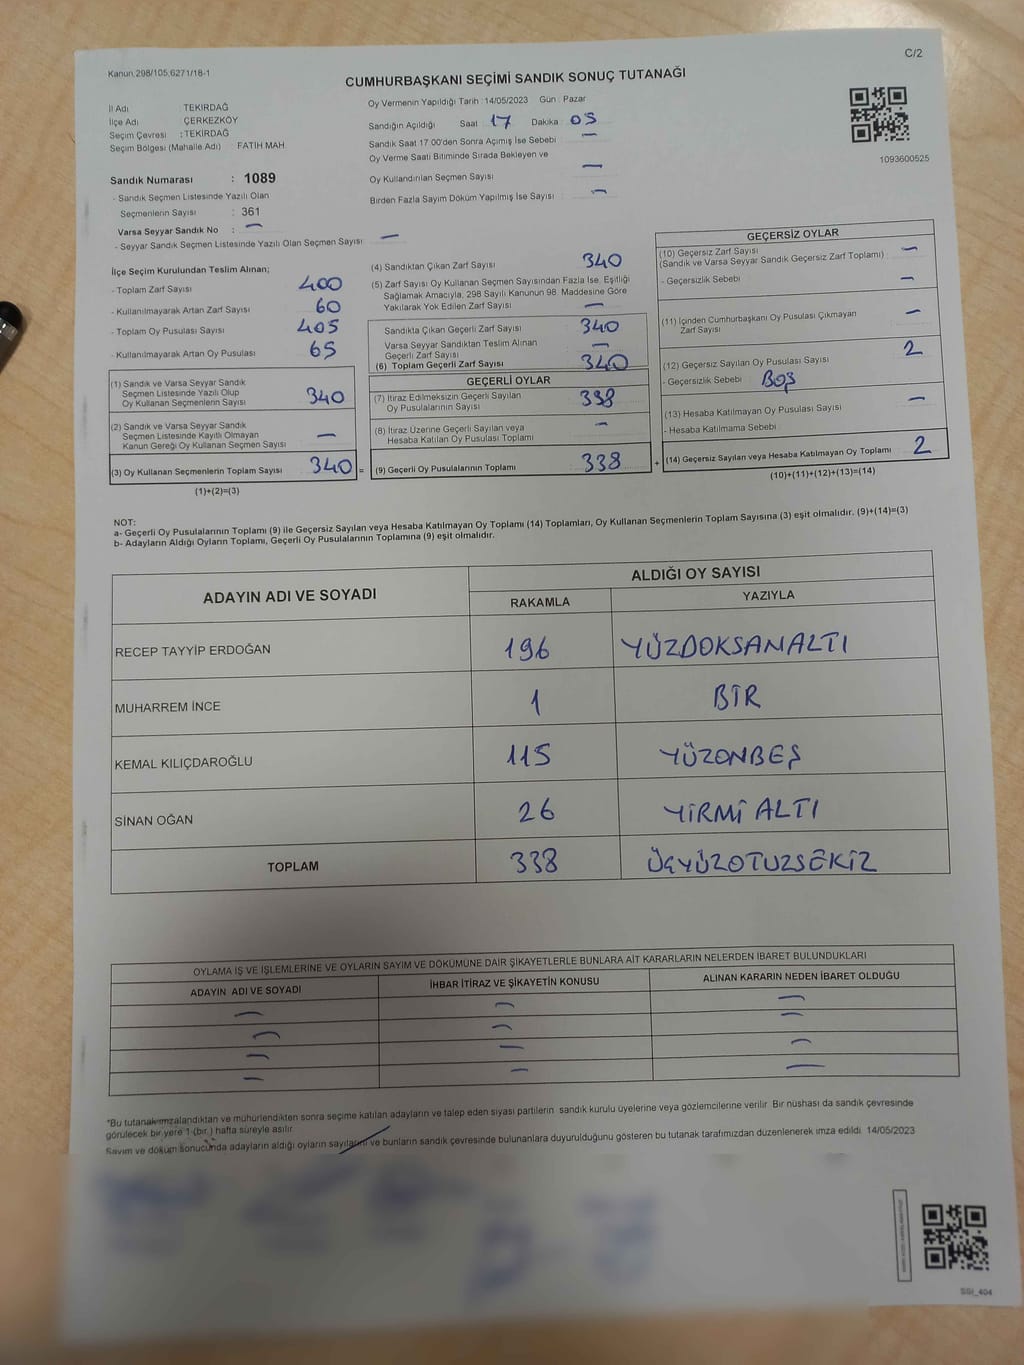 C/2
Kanun.298/105,6271/18-1
CUMHURBAŞKANI SEÇİMİ SANDIK SONUÇ TUTANAĞI
İl Adı : TEKİRDAĞ
İlçe Adı : ÇERKEZKÖY
Seçim Çevresi : TEKİRDAĞ
Seçim Bölgesi (Mahalle Adı) FATİH MAH.
Oy Vermenin Yapıldığı Tarih : 14/05/2023 Gün : Pazar
Sandığın Açıldığı Saat 17 Dakika 05
Sandık Saat 17.00'den Sonra Açımış İse Sebebi : —
Oy Verme Saati Bitiminde Sırada Bekleyen ve
Oy Kullandırılan Seçmen Sayısı —
Birden Fazla Sayım Döküm Yapılmış İse Sayısı —
1093600525
Sandık Numarası : 1089
- Sandık Seçmen Listesinde Yazılı Olan
Seçmenlerin Sayısı : 361
Varsa Seyyar Sandık No : —
- Seyyar Sandık Seçmen Listesinde Yazılı Olan Seçmen Sayısı —
İlçe Seçim Kurulundan Teslim Alınan;
- Toplam Zarf Sayısı 400
- Kullanılmayarak Artan Zarf Sayısı 60
- Toplam Oy Pusulası Sayısı 405
- Kullanılmayarak Artan Oy Pusulası 65
(1) Sandık ve Varsa Seyyar Sandık
Seçmen Listesinde Yazılı Olup
Oy Kullanan Seçmenlerin Sayısı 340
(2) Sandık ve Varsa Seyyar Sandık
Seçmen Listesinde Kayıtlı Olmayan
Kanun Gereği Oy Kullanan Seçmen Sayısı —
(3) Oy Kullanan Seçmenlerin Toplam Sayısı 340 =
(1)+(2)=(3)
(4) Sandıktan Çıkan Zarf Sayısı 340
(5) Zarf Sayısı Oy Kullanan Seçmen Sayısından Fazla İse, Eşitliği
Sağlamak Amacıyla, 298 Sayılı Kanunun 98. Maddesine Göre
Yakılarak Yok Edilen Zarf Sayısı —
Sandıkta Çıkan Geçerli Zarf Sayısı 340
Varsa Seyyar Sandıktan Teslim Alınan
Geçerli Zarf Sayısı —
(6) Toplam Geçerli Zarf Sayısı 340
GEÇERLİ OYLAR
(7) İtiraz Edilmeksizin Geçerli Sayılan
Oy Pusulalarının Sayısı 338
(8) İtiraz Üzerine Geçerli Sayılan veya
Hesaba Katılan Oy Pusulası Toplamı —
(9) Geçerli Oy Pusulalarının Toplamı 338 +
GEÇERSİZ OYLAR
(10) Geçersiz Zarf Sayısı —
(Sandık ve Varsa Seyyar Sandık Geçersiz Zarf Toplamı)
- Geçersizlik Sebebi : —
(11) İçinden Cumhurbaşkanı Oy Pusulası Çıkmayan
Zarf Sayısı —
(12) Geçersiz Sayılan Oy Pusulası Sayısı 2
- Geçersizlik Sebebi : BOŞ
(13) Hesaba Katılmayan Oy Pusulası Sayısı —
- Hesaba Katılmama Sebebi :
(14) Geçersiz Sayılan veya Hesaba Katılmayan Oy Toplamı 2
(10)+(11)+(12)+(13)=(14)
NOT:
a- Geçerli Oy Pusulalarının Toplamı (9) ile Geçersiz Sayılan veya Hesaba Katılmayan Oy Toplamı (14) Toplamları, Oy Kullanan Seçmenlerin Toplam Sayısına (3) eşit olmalıdır. (9)+(14)=(3)
b- Adayların Aldığı Oyların Toplamı, Geçerli Oy Pusulalarının Toplamına (9) eşit olmalıdır.
ADAYIN ADI VE SOYADI ALDIĞI OY SAYISI
RAKAMLA YAZIYLA
RECEP TAYYİP ERDOĞAN 196 YÜZDOKSANALTI
MUHARREM İNCE 1 BİR
KEMAL KILIÇDAROĞLU 115 YÜZONBEŞ
SİNAN OĞAN 26 YİRMİ ALTI
TOPLAM 338 ÜÇYÜZOTUZSEKİZ
OYLAMA İŞ VE İŞLEMLERİNE VE OYLARIN SAYIM VE DÖKÜMÜNE DAİR ŞİKAYETLERLE BUNLARA AİT KARARLARIN NELERDEN İBARET BULUNDUKLARI
ADAYIN ADI VE SOYADI İHBAR İTİRAZ VE ŞİKAYETİN KONUSU ALINAN KARARIN NEDEN İBARET OLDUĞU
— — —
— — —
— — —
— — —
*Bu tutanak imzalandıktan ve mühürlendikten sonra seçime katılan adayların ve talep eden siyasi partilerin sandık kurulu üyelerine veya gözlemcilerine verilir. Bir nüshası da sandık çevresinde
görülecek bir yere 1 (bir ) hafta süreyle asılır.
Sayım ve döküm sonucunda adayların aldığı oyların sayılarını ve bunların sandık çevresinde bulunanlara duyurulduğunu gösteren bu tutanak tarafımızdan düzenlenerek imza edildi. 14/05/2023
SSI_404